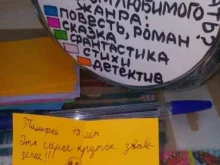 ЛЮБИМОГО
ЖАНРА:
ПОВЕСТЬ, РОМАН
СКАЗКА
ФАНТАСТИКА
СТИХИ
ДЕТЕКТИВ
Тимофей 10 лет
Это самое крутое